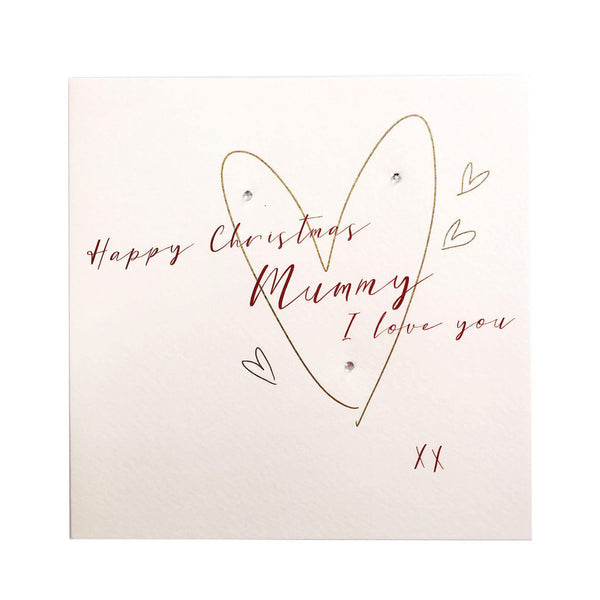 Happy Christmas
Mummy
I love you
XX